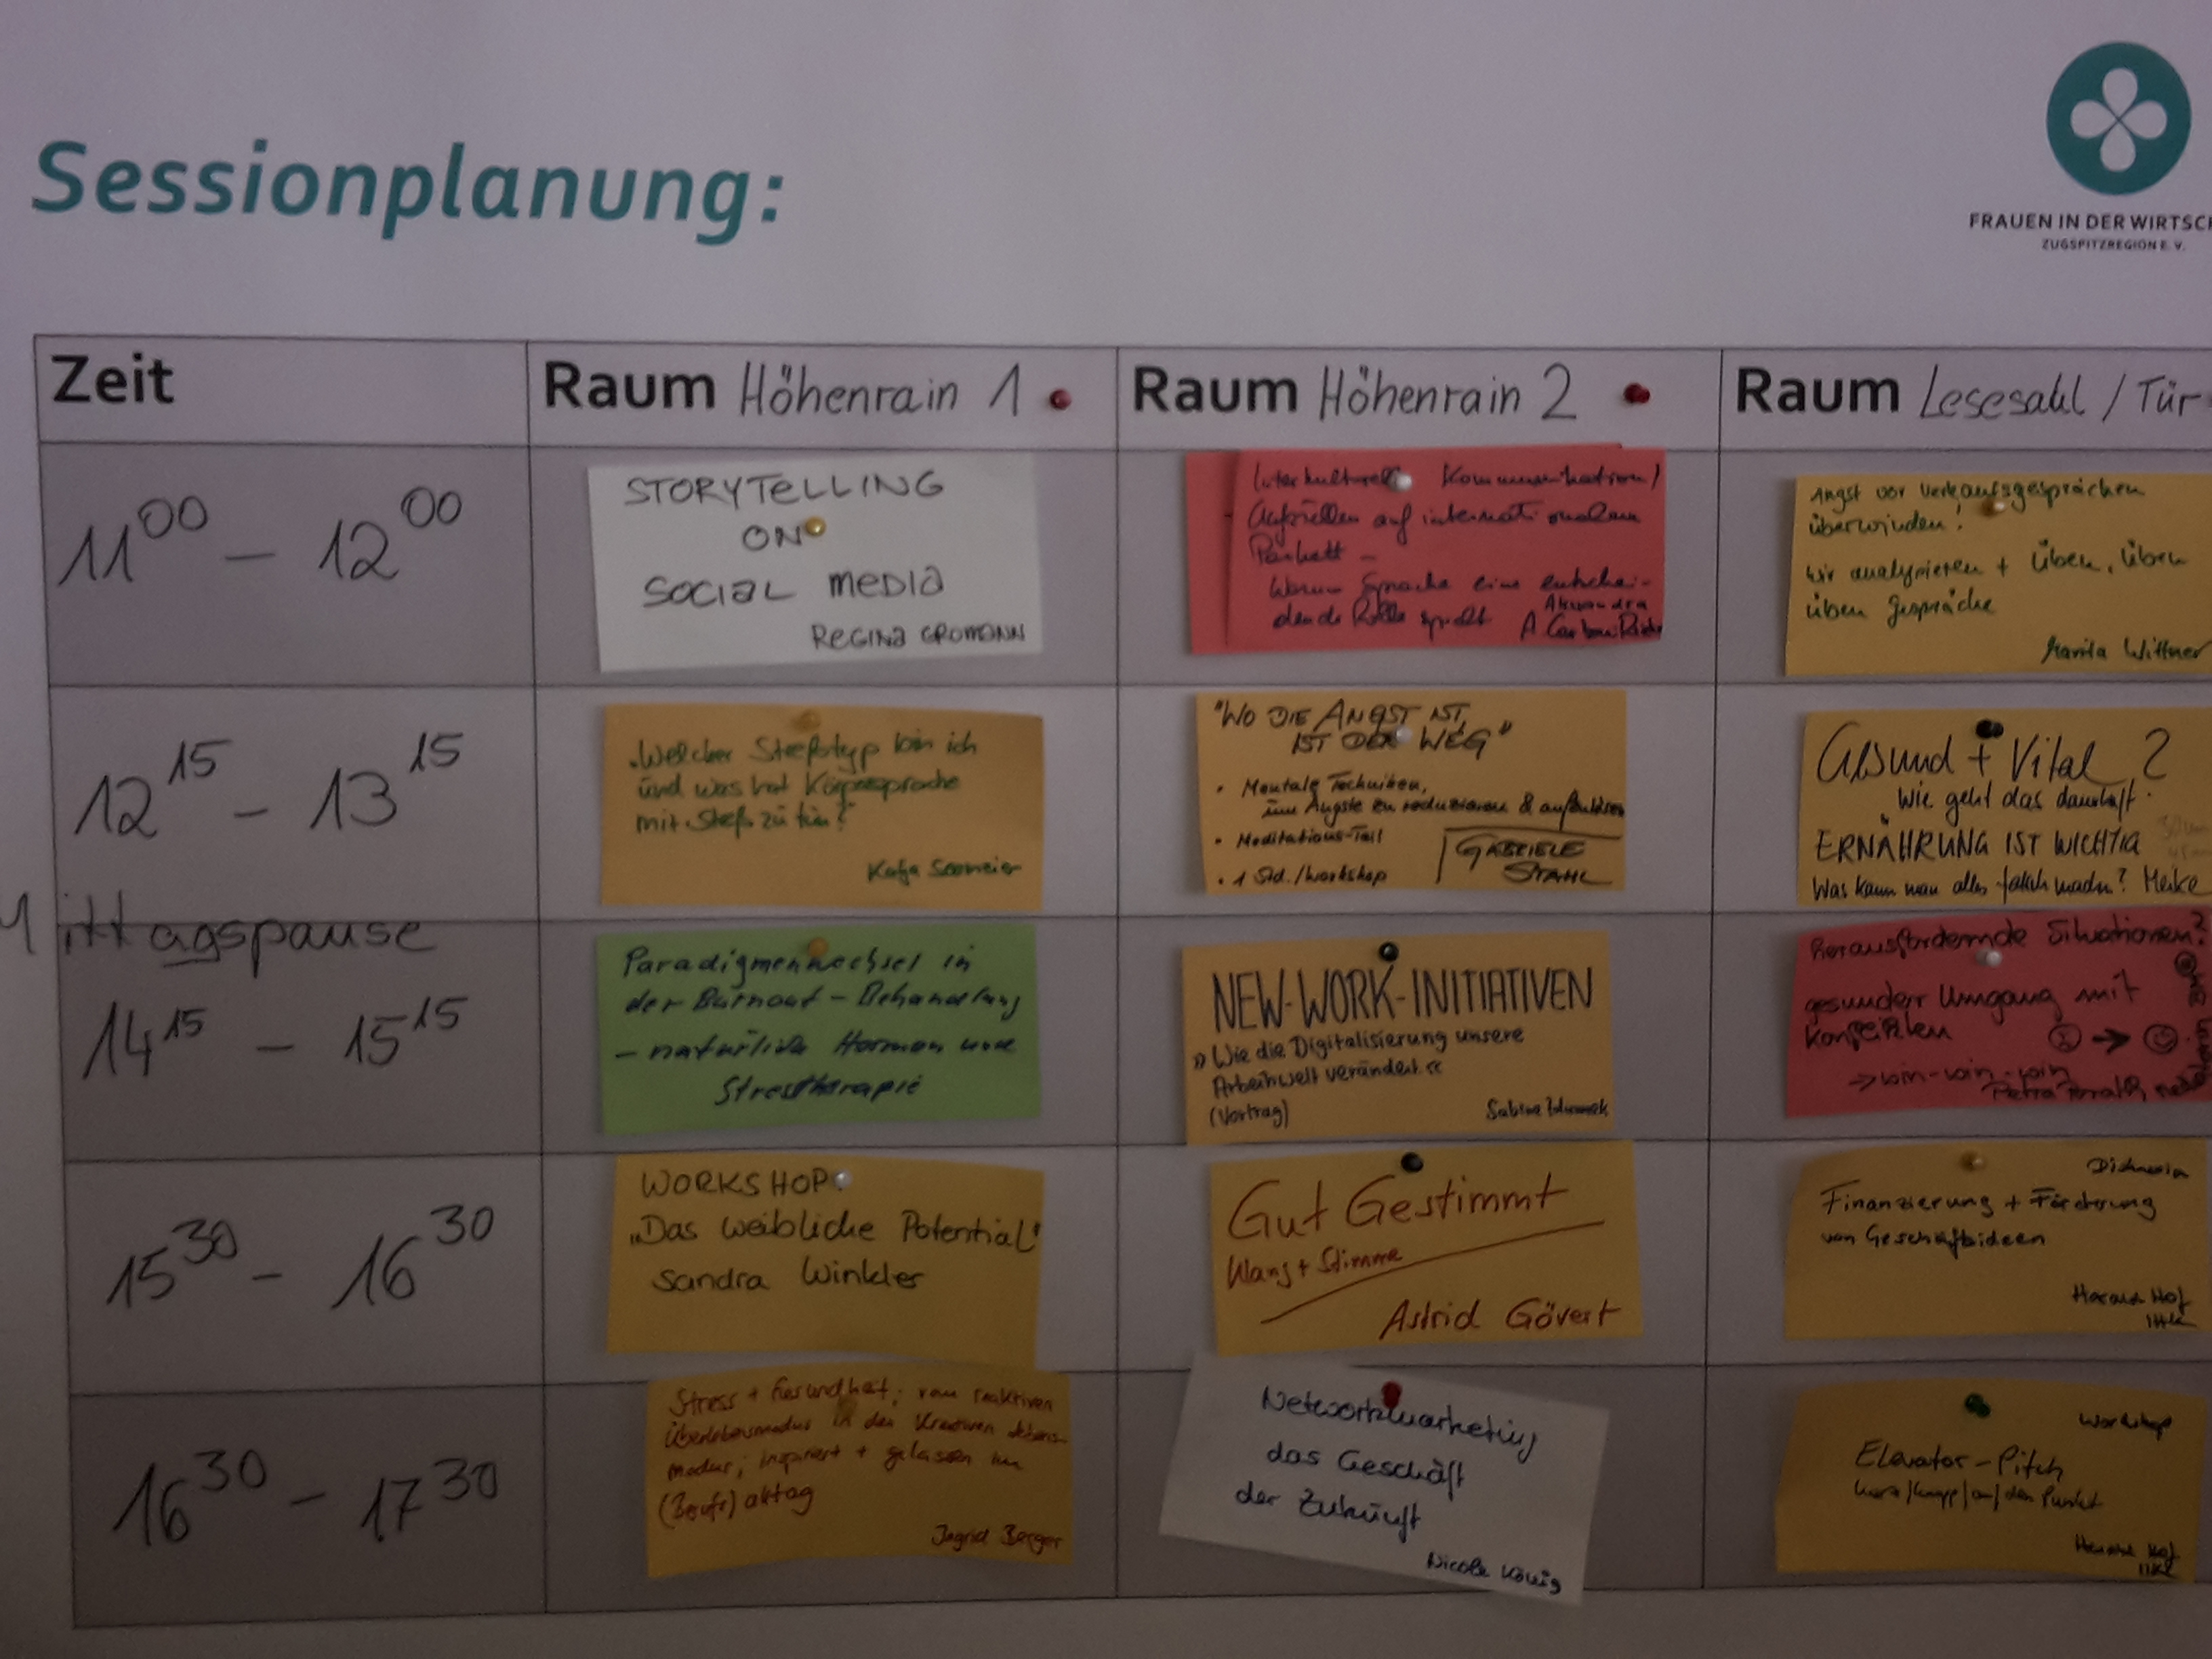 Sessionplanung:
FRAUEN IN DER WIRTSCH
ZUGSPITZREGION E. V.
Zeit
Raum Höhenrain 1
Raum Höhenrain 2
Raum Lesesahl / Tür
11 00 – 12 00
STORYTELLING
ON
SOCIAL MEDIA
REGINA GROMANN
Kommunikation /
auf internationalem
Parkett –
Warum Sprache eine entschei-
dende Rolle spielt
A.
Angst vor Verkaufsgesprächen
überwinden!
wir analysieren + üben, üben
üben Gespräche
Marita Wittner
12 15 – 13 15
„Welcher Streßtyp bin ich
und was hat Körpersprache
mit Streß zu tun?"
Katja
"WO DIE ANGST IST,
IST DER WEG"
• Mentale Techniken,
um Ängste zu reduzieren & aufzulösen
• Meditations-Teil
• 1 Std./Workshop
GABRIELE
STAHL
Gesund + Vital ?
Wie geht das dauerhaft.
ERNÄHRUNG IST WICHTIG
Was kann man alles falsch machen? Heike
Mittagspause
14 15 – 15 15
Paradigmenwechsel in
der Burnout – Behandlung
– natürliche Hormon und
Stresstherapie
NEW-WORK-INITIATIVEN
» Wie die Digitalisierung unsere
Arbeitswelt verändert «
(Vortrag)
Sabine
Herausfordernde Situationen?
gesunder Umgang mit
Konflikten
→ win-win-win
Petra
15 30 – 16 30
WORKSHOP:
„Das weibliche Potential"
Sandra Winkler
Gut Gestimmt
Klang + Stimme
Astrid Gövert
Finanzierung + Förderung
von Geschäftsideen
Hof
IHK
16 30 – 17 30
Stress + Gesundheit; vom reaktiven
Überlebensmodus in den Kreativen Lebens-
modus; inspiriert + gelassen im
(Berufs) alltag
Ingrid Berger
Networkmarketing
das Geschäft
der Zukunft
Nicole König
Workshop
Elevator-Pitch
kurz/knapp/auf den Punkt
Hof
IHK